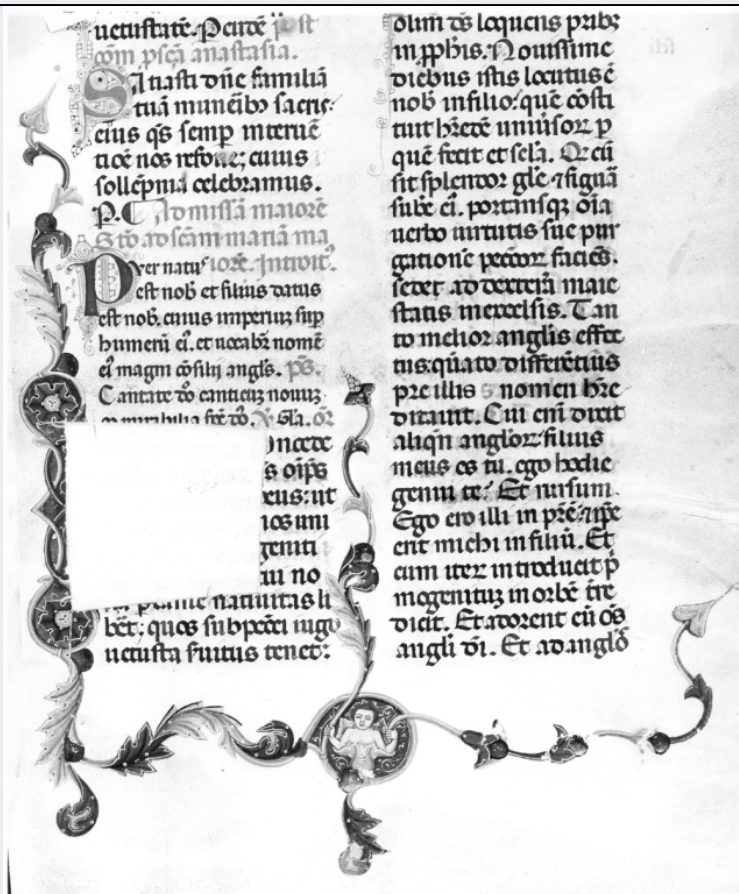 uetustatē. Per dn̄m p̄ost
cōm p̄sc̄a anastasia.
Saciasti dn̄e familiā
tuā munerib₉ sacris:
eius q̄s semp̱ interuē
tiōe nos refoue; cuius
sollēpnia celebramus.
P. Ad missā maiorē
Stō. ad sc̄am mariā ma
Puer natus iorē. Introit̄.
est nob̄ et filius datus
est nob̄. cuius imperiuʒ sup
humerū ei. et uocab̄ nomē
ei magni cōsilij angl̄s. p̄s.
Cantate dō canticuʒ nouuʒ
mirabilia fēc̄ dō. Gl̄a. or̄
oncede
s oīp̄s
eus: ut
nos uni
geniti
natiuitas li
bēt; quos sub pcc̄i iugo
uetusta s̄uitus tenet:
olim d̄s loquens p̄rib₉
in p̱ph̄is. Nouissime
diebus istis locutus ē
nob̄ in filio: quē cōsti
tuit h̄redē uniūsoꝝ p
quē fecit et secl̄a. Qr cū
sit splendor gl̄e ⁊ figurā
sub̄e ei. portansqʒ oīa
uerbo uirtutis sue pur
gationē pecc̄oꝝ faciēs.
sedet ad dexterā maie
statis in excelsis. Tan
to melior angl̄is effec
tus: quāto differētius
pre illis nomen h̄re
ditauit. Cui eni dixit
aliqn̄ angl̄oꝝ: filius
meus es tu. ego hodie
genui te. Et rursum.
Ego ero illi in p̄rē: ⁊ ip̄e
erit michi in filiū. Et
cum iteꝝ introducit p̄
mogenituʒ in orbē t̄re
dicit. Et adorent eū oēs
angl̄i dī. Et ad angl̄o